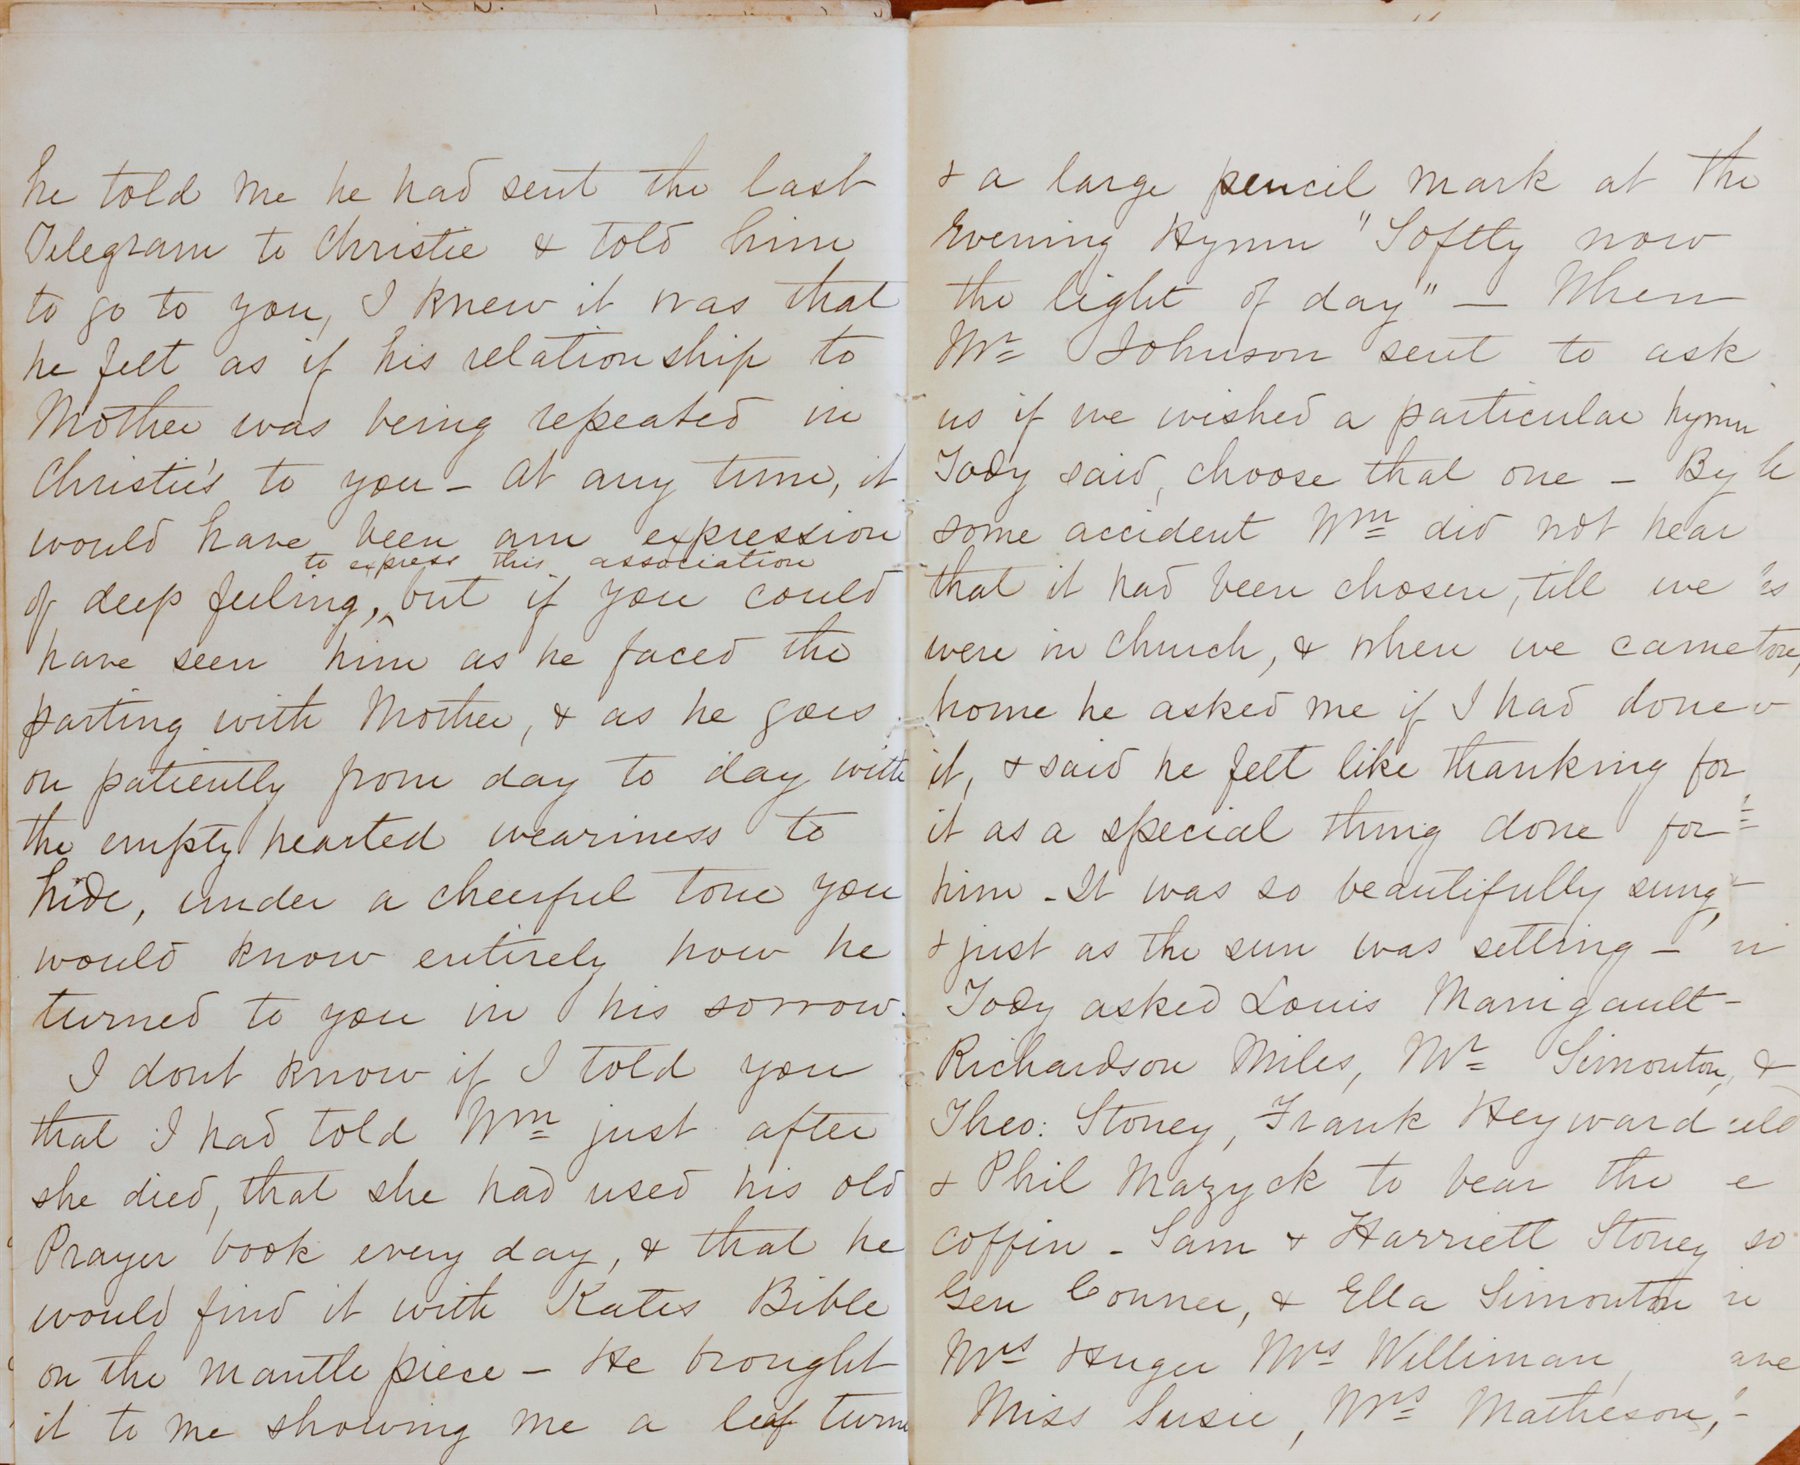 he told me he had sent the last
Telegram to Christie & told him
to go to you, I knew it was that
he felt as if his relationship to
Mother was being repeated in
Christie's to you - at any time, it
would have been an expression
to express this association
of deep feeling, but if you could
have seen him as he faced the
parting with Mother, & as he goes
on patiently from day to day with
the empty hearted weariness to
hide, under a cheerful tone you
would know entirely how he
turned to you in his sorrow.
I dont know if I told you
that I had told Wm just after
she died, that she had used his old
Prayer book every day, & that he
would find it with Kates Bible
on the mantle piece - He brought
it to me showing me a leaf turn
& a large pencil mark at the
Evening Hymn "Softly now
the light of day" - When
Mr Johnson sent to ask
us if we wished a particular hymn
Tody said, choose that one - By
some accident Wm did not hear
that it had been chosen, till we
were in church, & when we came
home he asked me if I had done
it, & said he felt like thanking for
it as a special thing done for
him - It was so beautifully sung
& just as the sun was setting -
Tody asked Louis Manigault -
Richardson Miles, Mr Simonton, &
Theo: Stoney, Frank Heyward
& Phil Mazyck to bear the
coffin - Sam & Harriett Stoney
Gen Conner, & Ella Simonton
Mrs Huger Mrs Williman,
Miss Susie, Mrs Matheson,